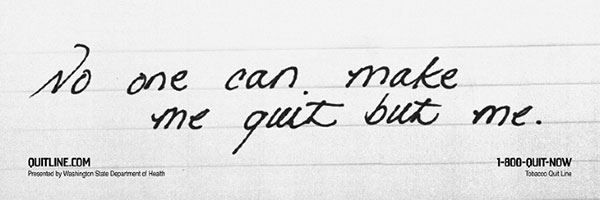 No one can make
me quit but me.
QUITLINE.COM
Presented by Washington State Department of Health
1-800-QUIT-NOW
Tobacco Quit Line